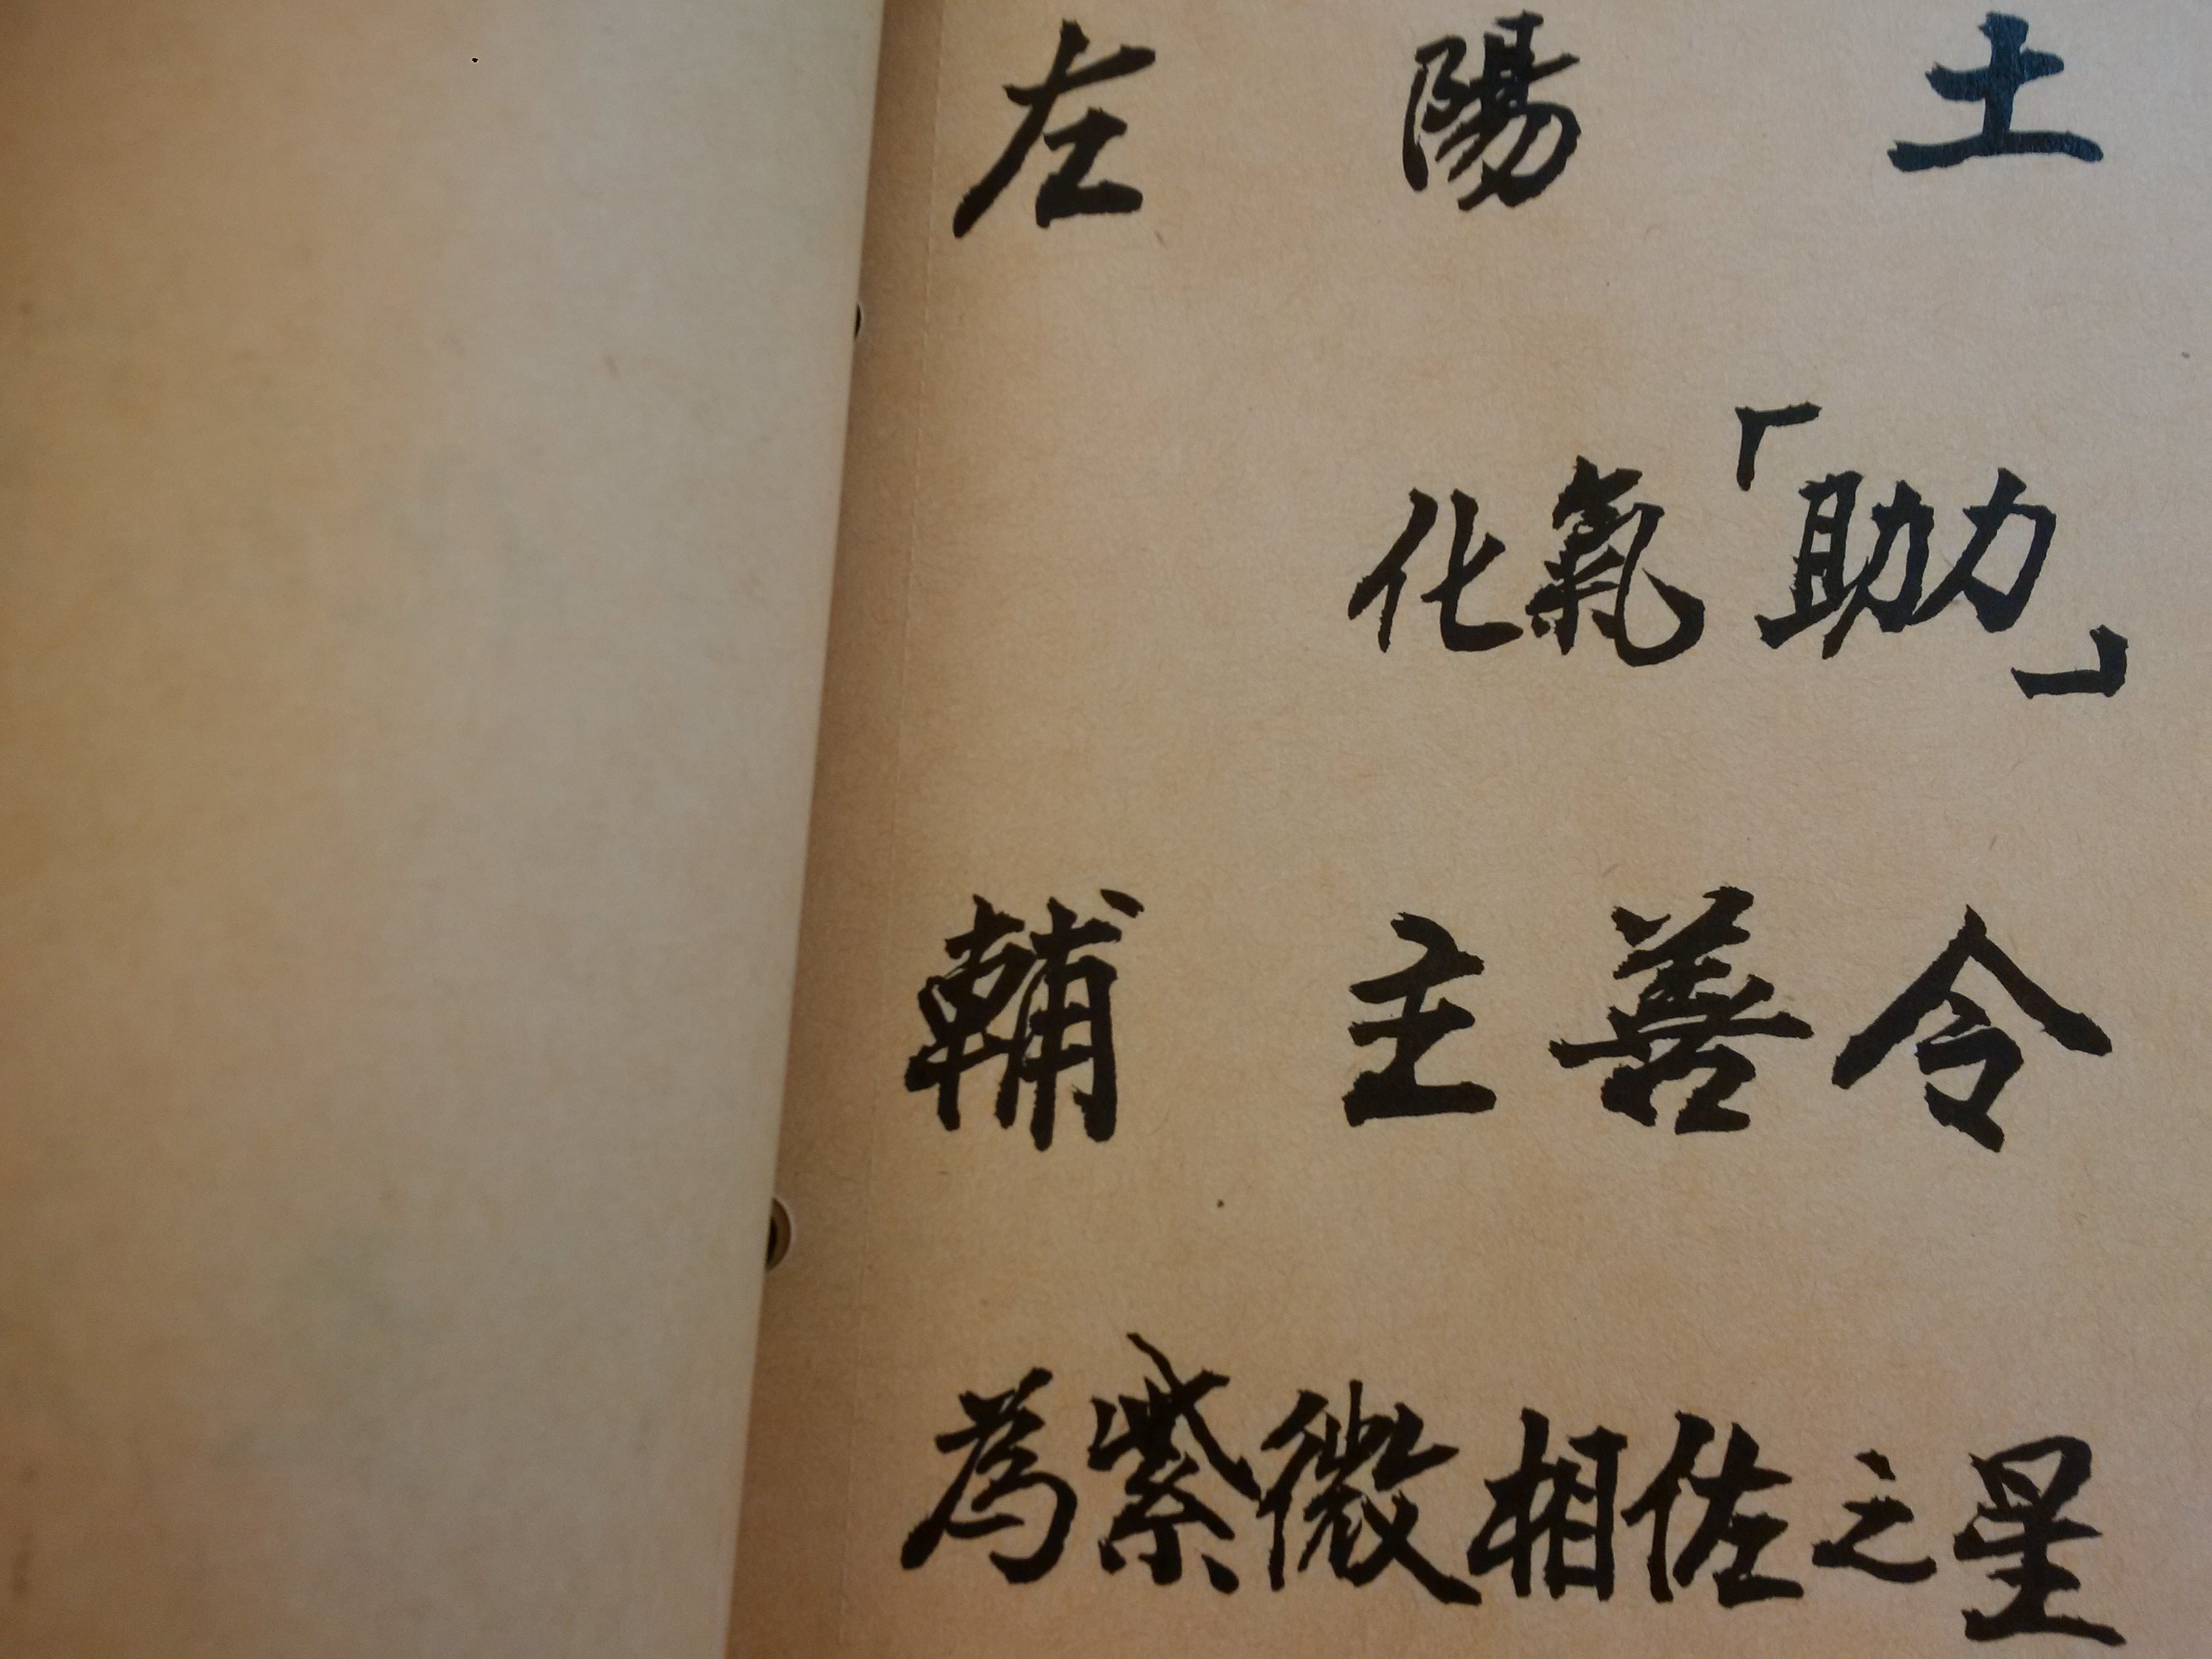 左 陽 土
化氣「助力」
輔 主善令
為紫微相佐之星